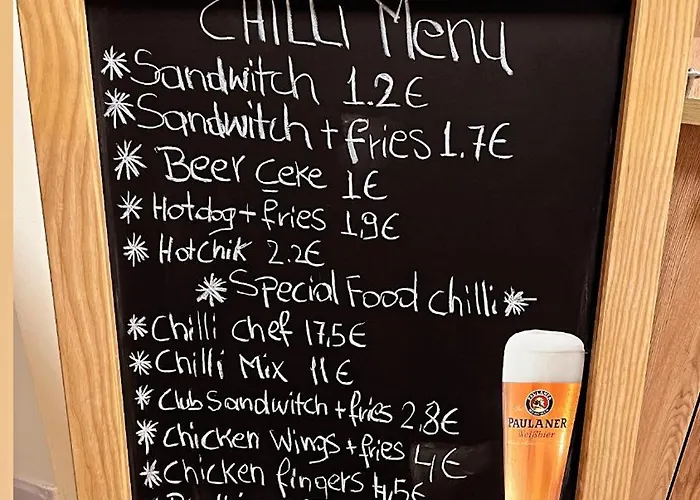 CHILLI Menu
*Sandwitch 1.2€
*Sandwitch + fries 1.7€
*Beer ceke 1€
*Hotdog + fries 1,9€
*HotChik 2.2€
*Special Food chilli*
*Chilli chef 17,5€
*Chilli Mix 11€
*Club Sandwitch + fries 2,8€
*Chicken Wings + fries 4€
*Chicken fingers 4,5€
PAULANER
Weißbier